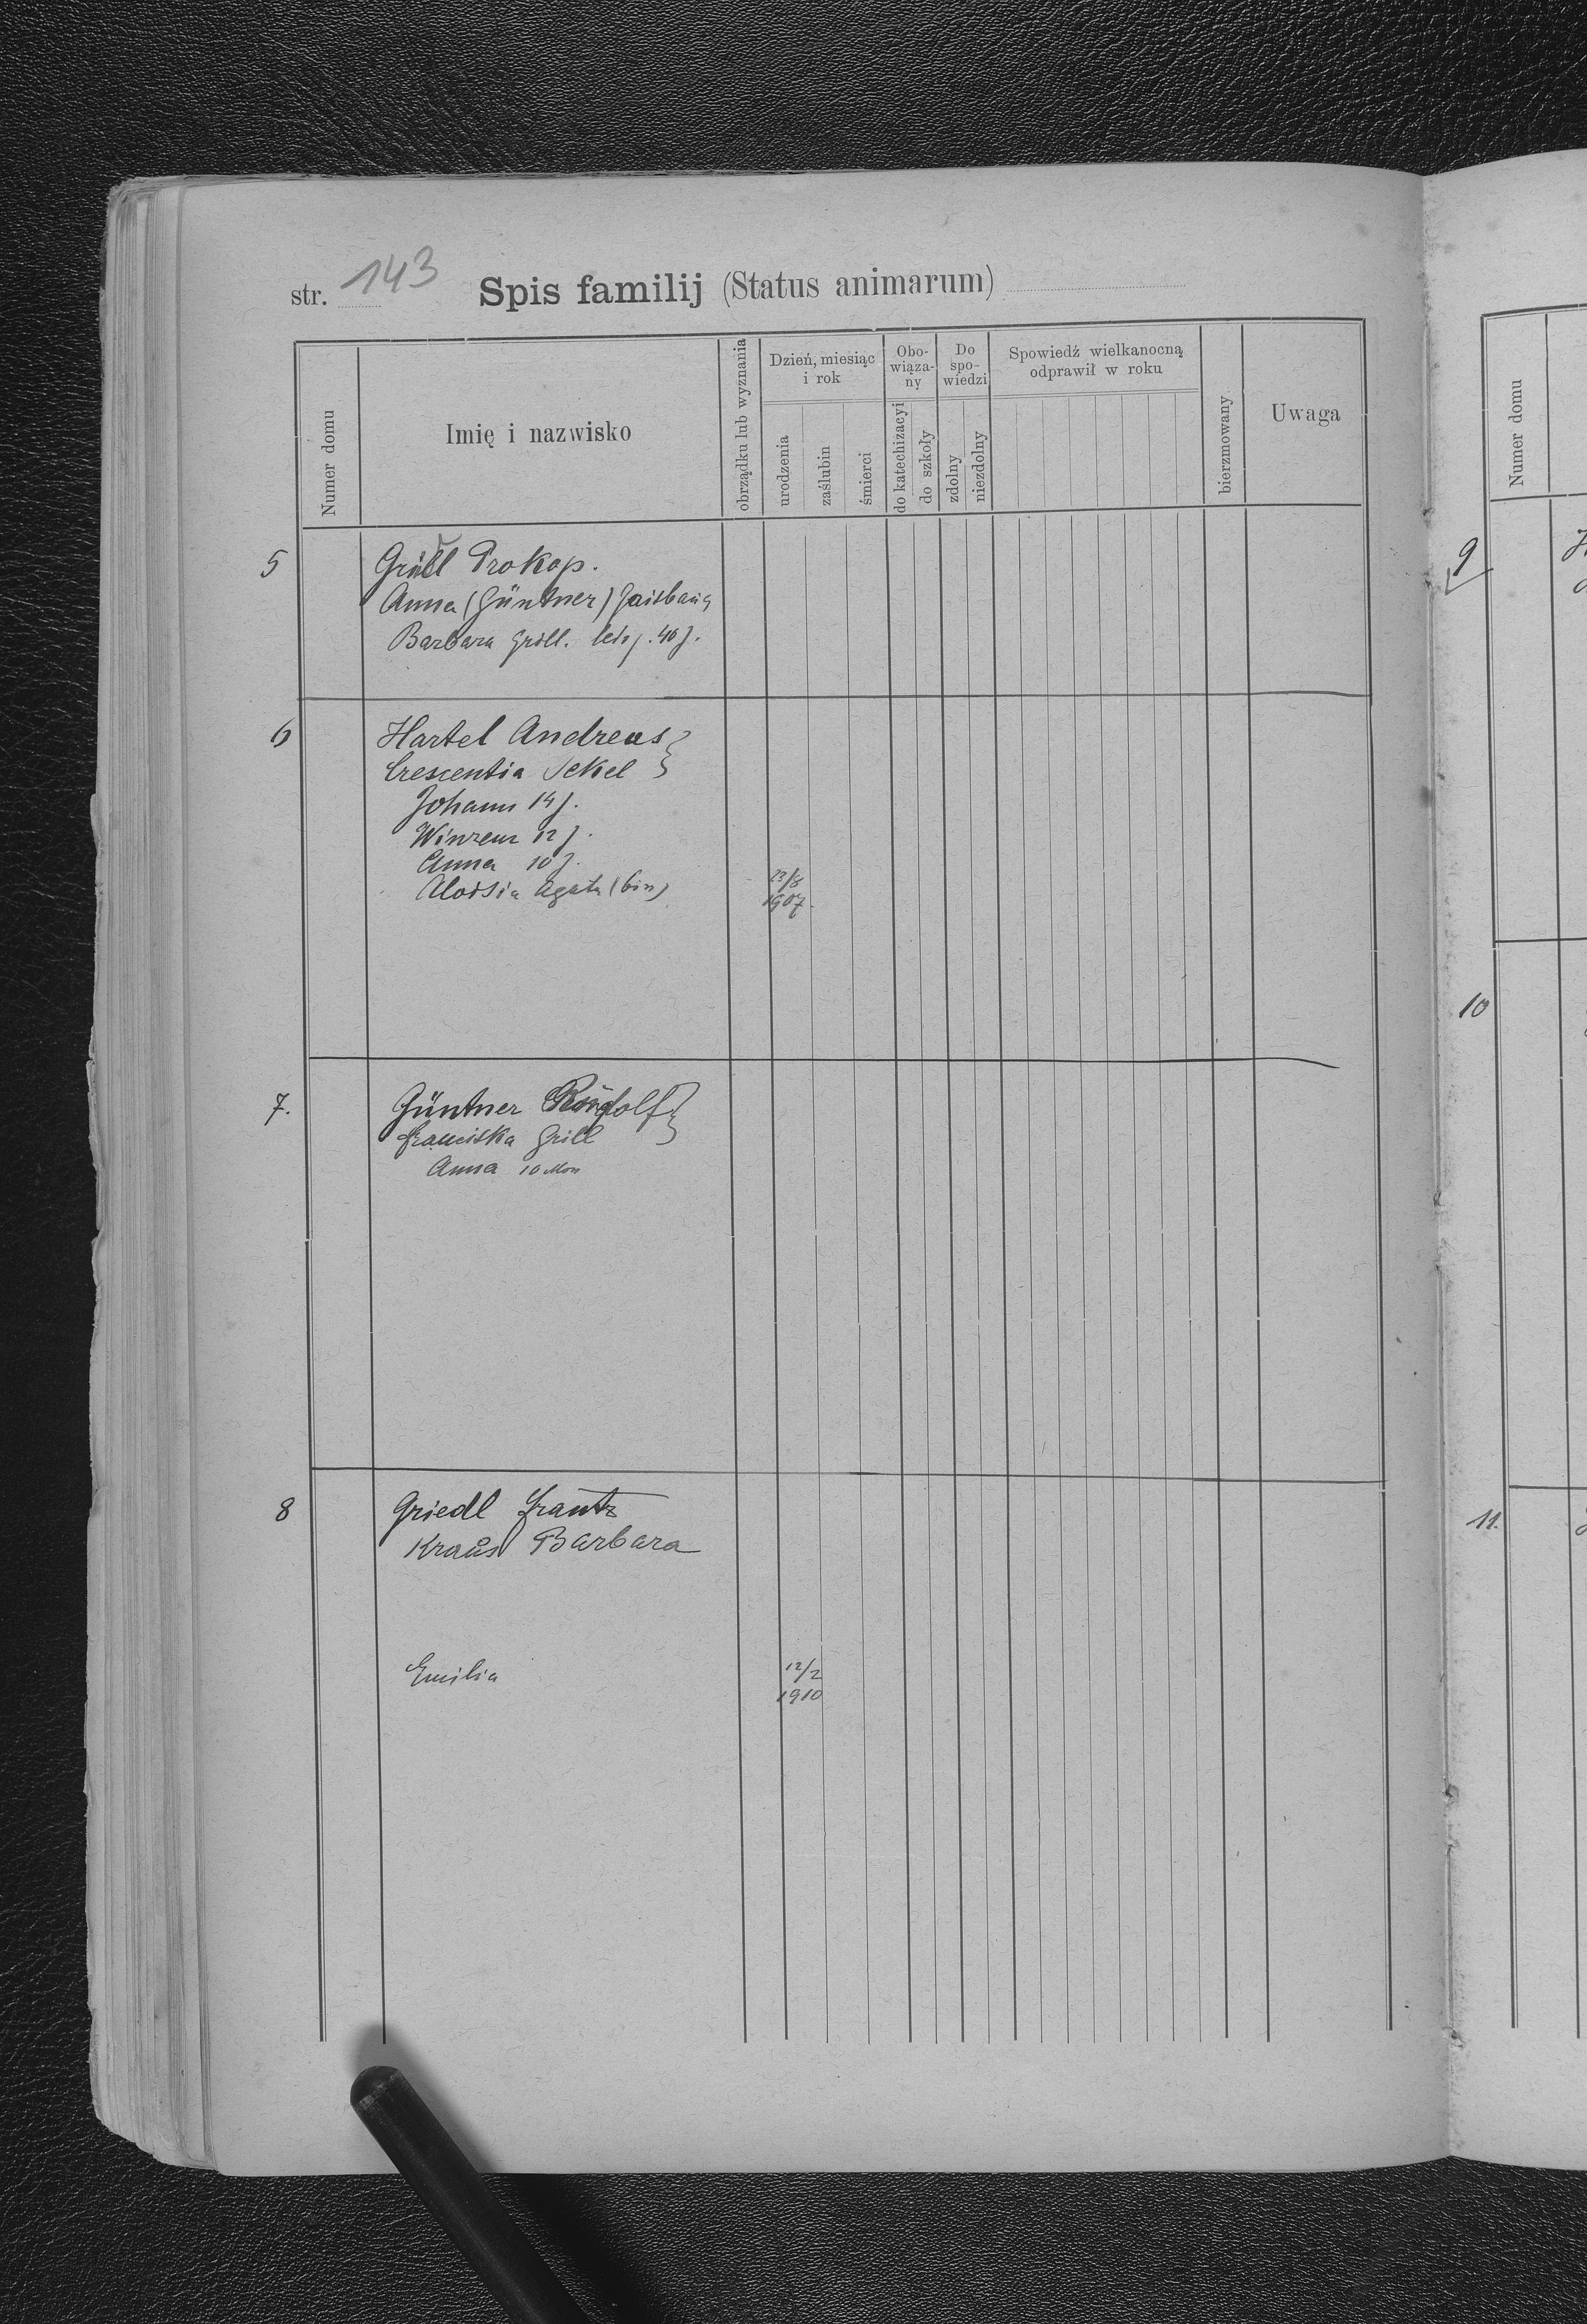 str. 143 Spis familij (Status animarum)
Numer domu
Imię i nazwisko
obrządku lub wyznania
Dzień, miesiąc
i rok
urodzenia
zaślubin
śmierci
Obo-
wiąza-
ny
do katechizacyi
do szkoły
Do
spo-
wiedzi
zdolny
niezdolny
Spowiedź wielkanocną
odprawił w roku
bierzmowany
Uwaga
5 Grill Prokop.
Anna (Güntner)
Barbara Grill. led. 40 J.
6 Hartel Andreas
Crescentia Sekel
Johann 14 J.
Winzenz 12 J.
Anna 10 J.
Aloisia Agata (bin) 23/8
1907.
7. Güntner Rudolf
Franciska Grill
Anna 10 Mon
8 Griedl Frantz
Kraus Barbara
Emilia 12/2
1910
Numer domu
9
10
11.